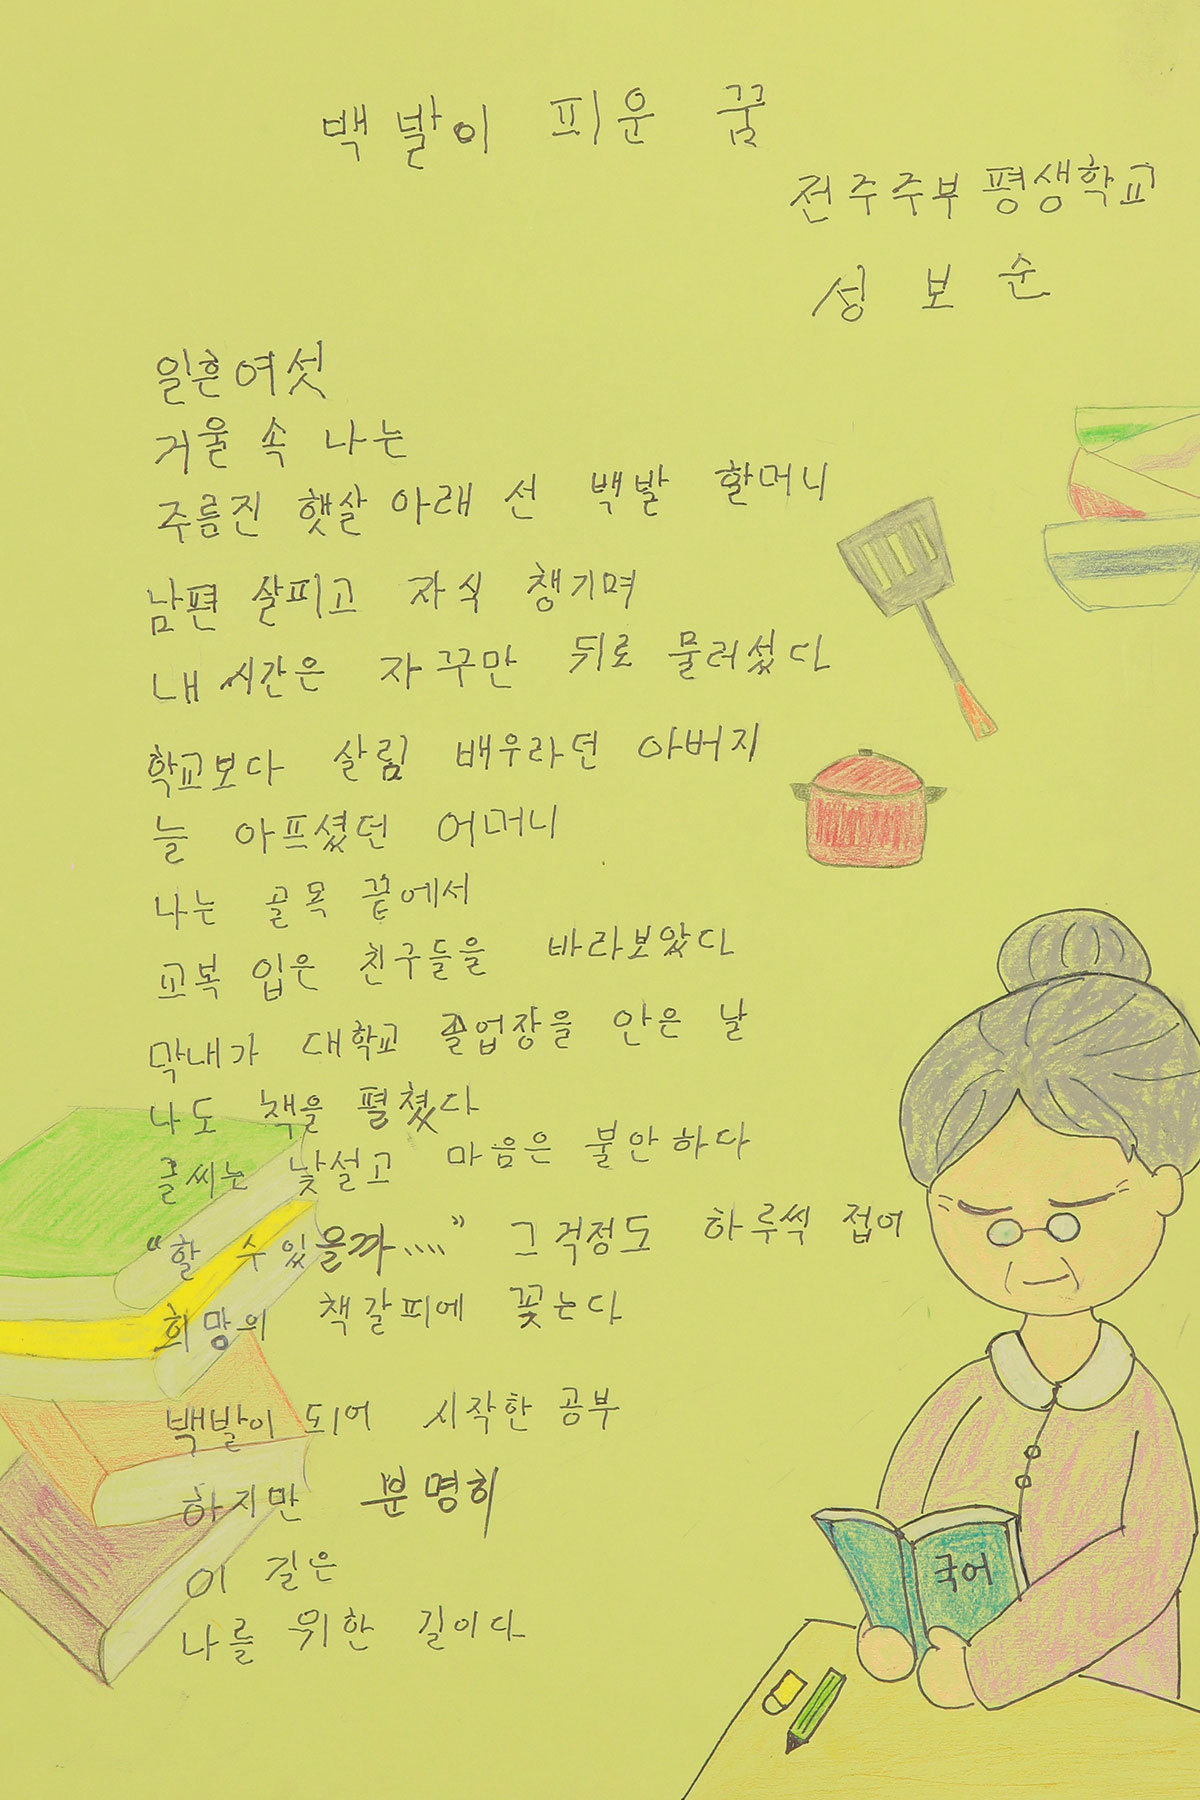 백발이 피운 꿈
전주주부평생학교
성보순
일흔여섯
거울 속 나는
주름진 햇살 아래 선 백발 할머니
남편 살피고 자식 챙기며
내 시간은 자꾸만 뒤로 물러섰다
학교보다 살림 배우라던 아버지
늘 아프셨던 어머니
나는 골목 끝에서
교복 입은 친구들을 바라보았다
막내가 대학교 졸업장을 안은 날
나도 책을 펼쳤다
글씨는 낯설고 마음은 불안하다
"할 수 있을까...." 그 걱정도 하루씩 접어
희망의 책갈피에 꽂는다
백발이 되어 시작한 공부
하지만 분명히
이 길은
나를 위한 길이다
국어